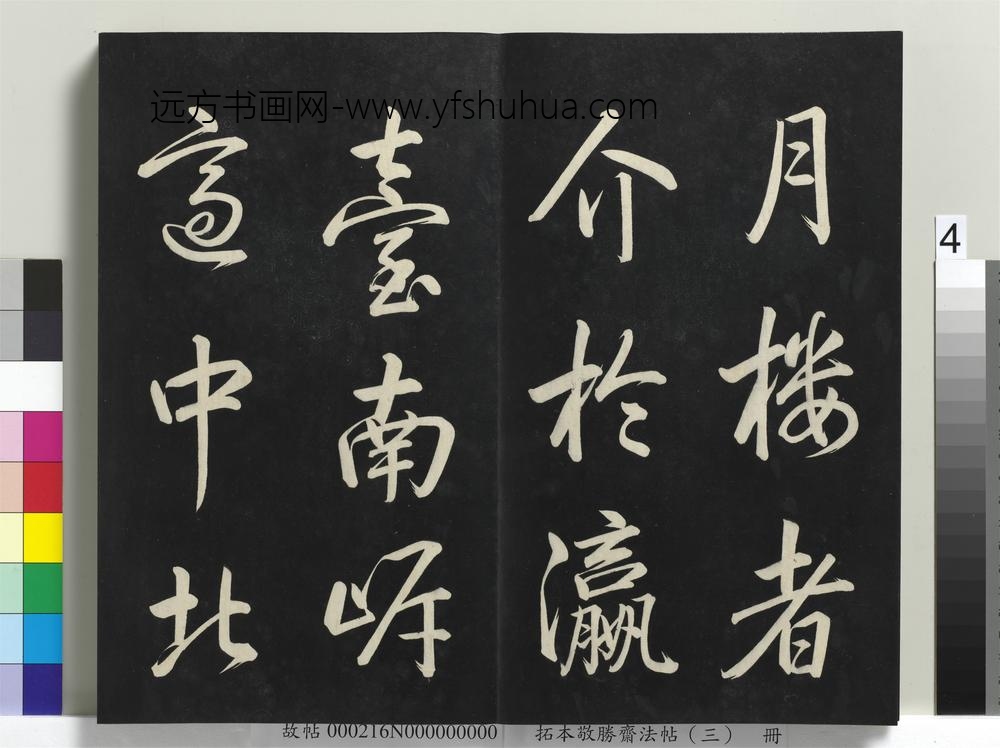 远方书画网-www.yfshuhua.com
月樓者
介於瀛
臺南岸
適中北
4
故帖 000216N000000000
拓本敬勝齋法帖（三） 冊